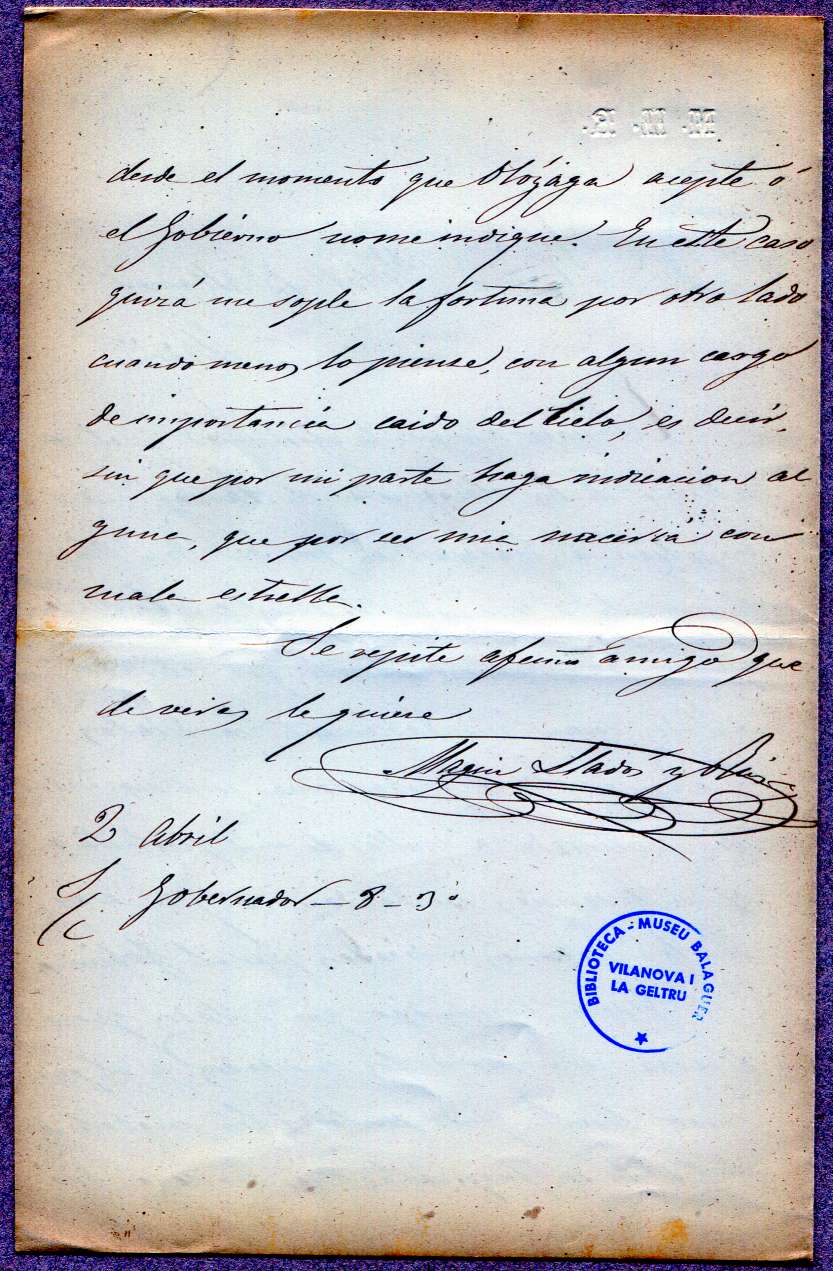 desde el momento que Olózaga acepte ó
el Gobierno nome indique. En este caso
quizá me sople la fortuna por otro lado
cuando menos lo piense, con algun cargo
de importancia caido del Cielo, es decir,
sin que por mi parte haga indicacion al
guna, que por ser mia naceria con
mala estrella.
Se repite afemo amigo que
de veras le quiere
Magin Lladós y
2 Abril
S/c Gobernador – 8 – 3º
BIBLIOTECA - MUSEU BALAGUER
VILANOVA I
LA GELTRU